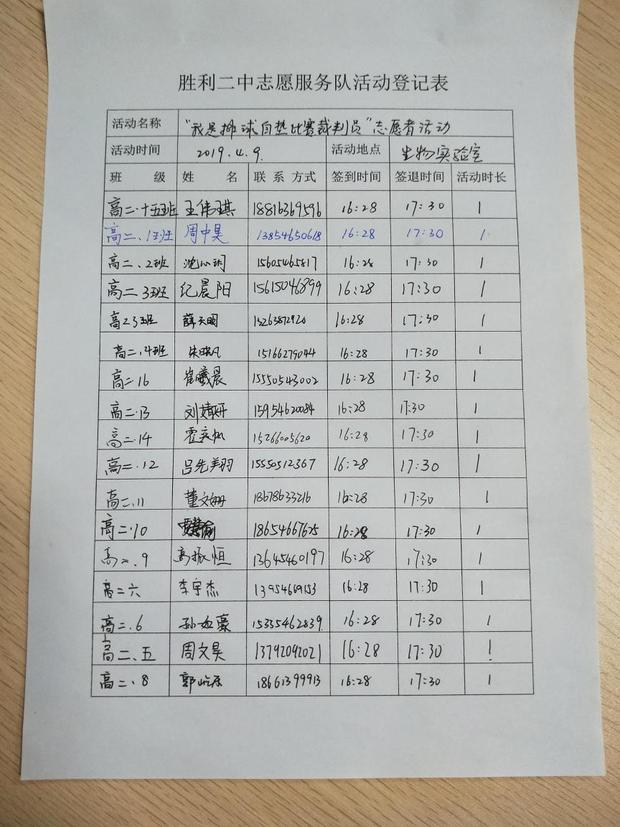 胜利二中志愿服务队活动登记表
活动名称 "我是排球自垫比赛裁判员"志愿者活动
活动时间 2019.4.9. 活动地点 生物实验室
班 级 姓 名 联系方式 签到时间 签退时间 活动时长
高二.十五班 王伟琪 18816369596 16:28 17:30 1
高二.1班 周中昊 13854650618 16:28 17:30 1
高二.2班 15605465817 16:28 17:30 1
高二.3班 纪晨阳 15615046899 16:28 17:30 1
高二3班 薛天明 15263872920 16:28 17:30 1
高二.4班 朱晓凡 15166279044 16:28 17:30 1
高二.16 崔曦晨 15550543002 16:28 17:30 1
高二.13 刘婧妍 15954620084 16:28 17:30 1
高二.14 霍奕帆 15266005620 16:28 17:30 1
高二.12 吕先美羽 15550512367 16:28 17:30 1
高二.11 董文姗 18678633216 16:28 17:30 1
高二.10 18654667625 16:28 17:30 1
高二.9 高振恒 13645460197 16:28 17:30 1
高二六 李宇杰 13954689153 16:28 17:30 1
高二.6 孙如豪 15335462839 16:28 17:30 1
高二.五 周文昊 13792092021 16:28 17:30 1
高二.8 郭屹辰 18661399913 16:28 17:30 1